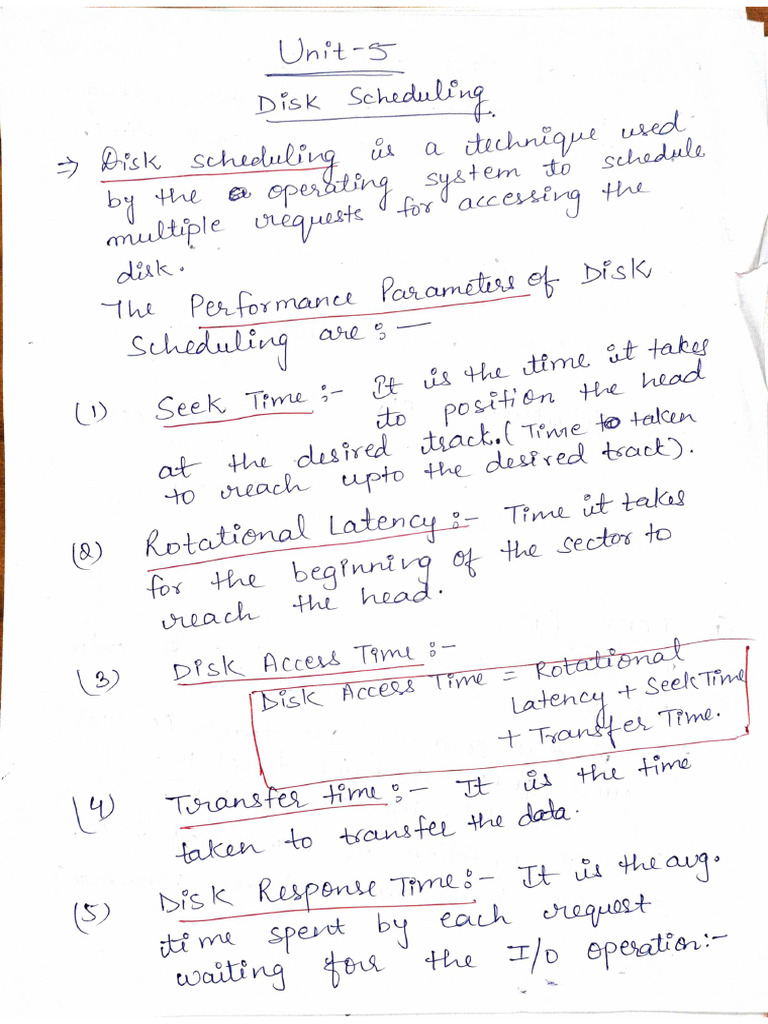 Unit-5
Disk Scheduling.
⇒ Disk scheduling is a technique used
by the operating system to schedule
multiple requests for accessing the
disk.
The Performance Parameters of Disk
Scheduling are :—
(1) Seek Time :- It is the time it takes
to position the head
at the desired track. (Time to taken
to reach upto the desired track).
(2) Rotational Latency :- Time it takes
for the beginning of the sector to
reach the head.
(3) Disk Access Time :-
Disk Access Time = Rotational
Latency + Seek Time
+ Transfer Time.
(4) Transfer time :- It is the time
taken to transfer the data.
(5) Disk Response Time :- It is the avg.
time spent by each request
waiting for the I/O operation :-